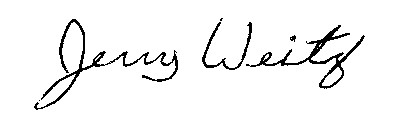 Jerry Weitz